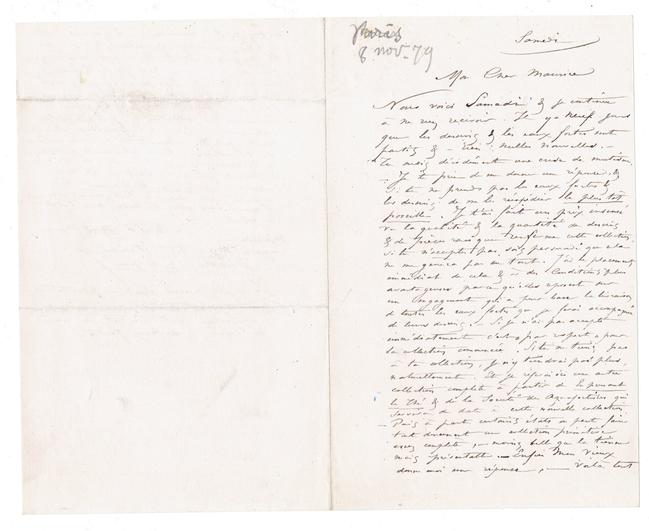 Paris
8 nov. 79
Samedi
Mon Cher Maurice
Nous voici Samedi & je continue
à ne rien recevoir. Il y a neuf jours
que les dessins & les eaux fortes sont
partis & - rien : nulles nouvelles. -
Tu as décidément une
- Je te prie de me donner une réponse &
si tu ne prends pas les eaux fortes &
les dessins de me les réexpédier le plus tôt
possible. Je t'ai fait un prix
vu la qualité & la quantité de dessins
& de pièces rares que renferme cette collection
si tu n'acceptes pas, sois persuadé que cela
ne me gênera pas du tout. J'ai le placement
immédiat de cela & à des Conditions plus
avantageuses parce qu'elles reposent sur
un Engagement qui a pour base la livraison
de toutes les eaux fortes que je ferai accompagnées
de leurs dessins. - Si je n'ai pas accepté
immédiatement c'est par respect pour
la collection commencée. Si tu ne tiens pas
à ta collection, je n'y tiendrai pas plus,
naturellement. Et je
collection complète à partir de
le Thé & de la Société des Aquafortistes qui
servira de date à cette nouvelle collection.
- Puis à part certains états on peut faire
une collection primitive
assez complète, - moins belle que la tienne
mais présentable. - Enfin Mon Vieux
donne moi une réponse, - Voilà tout